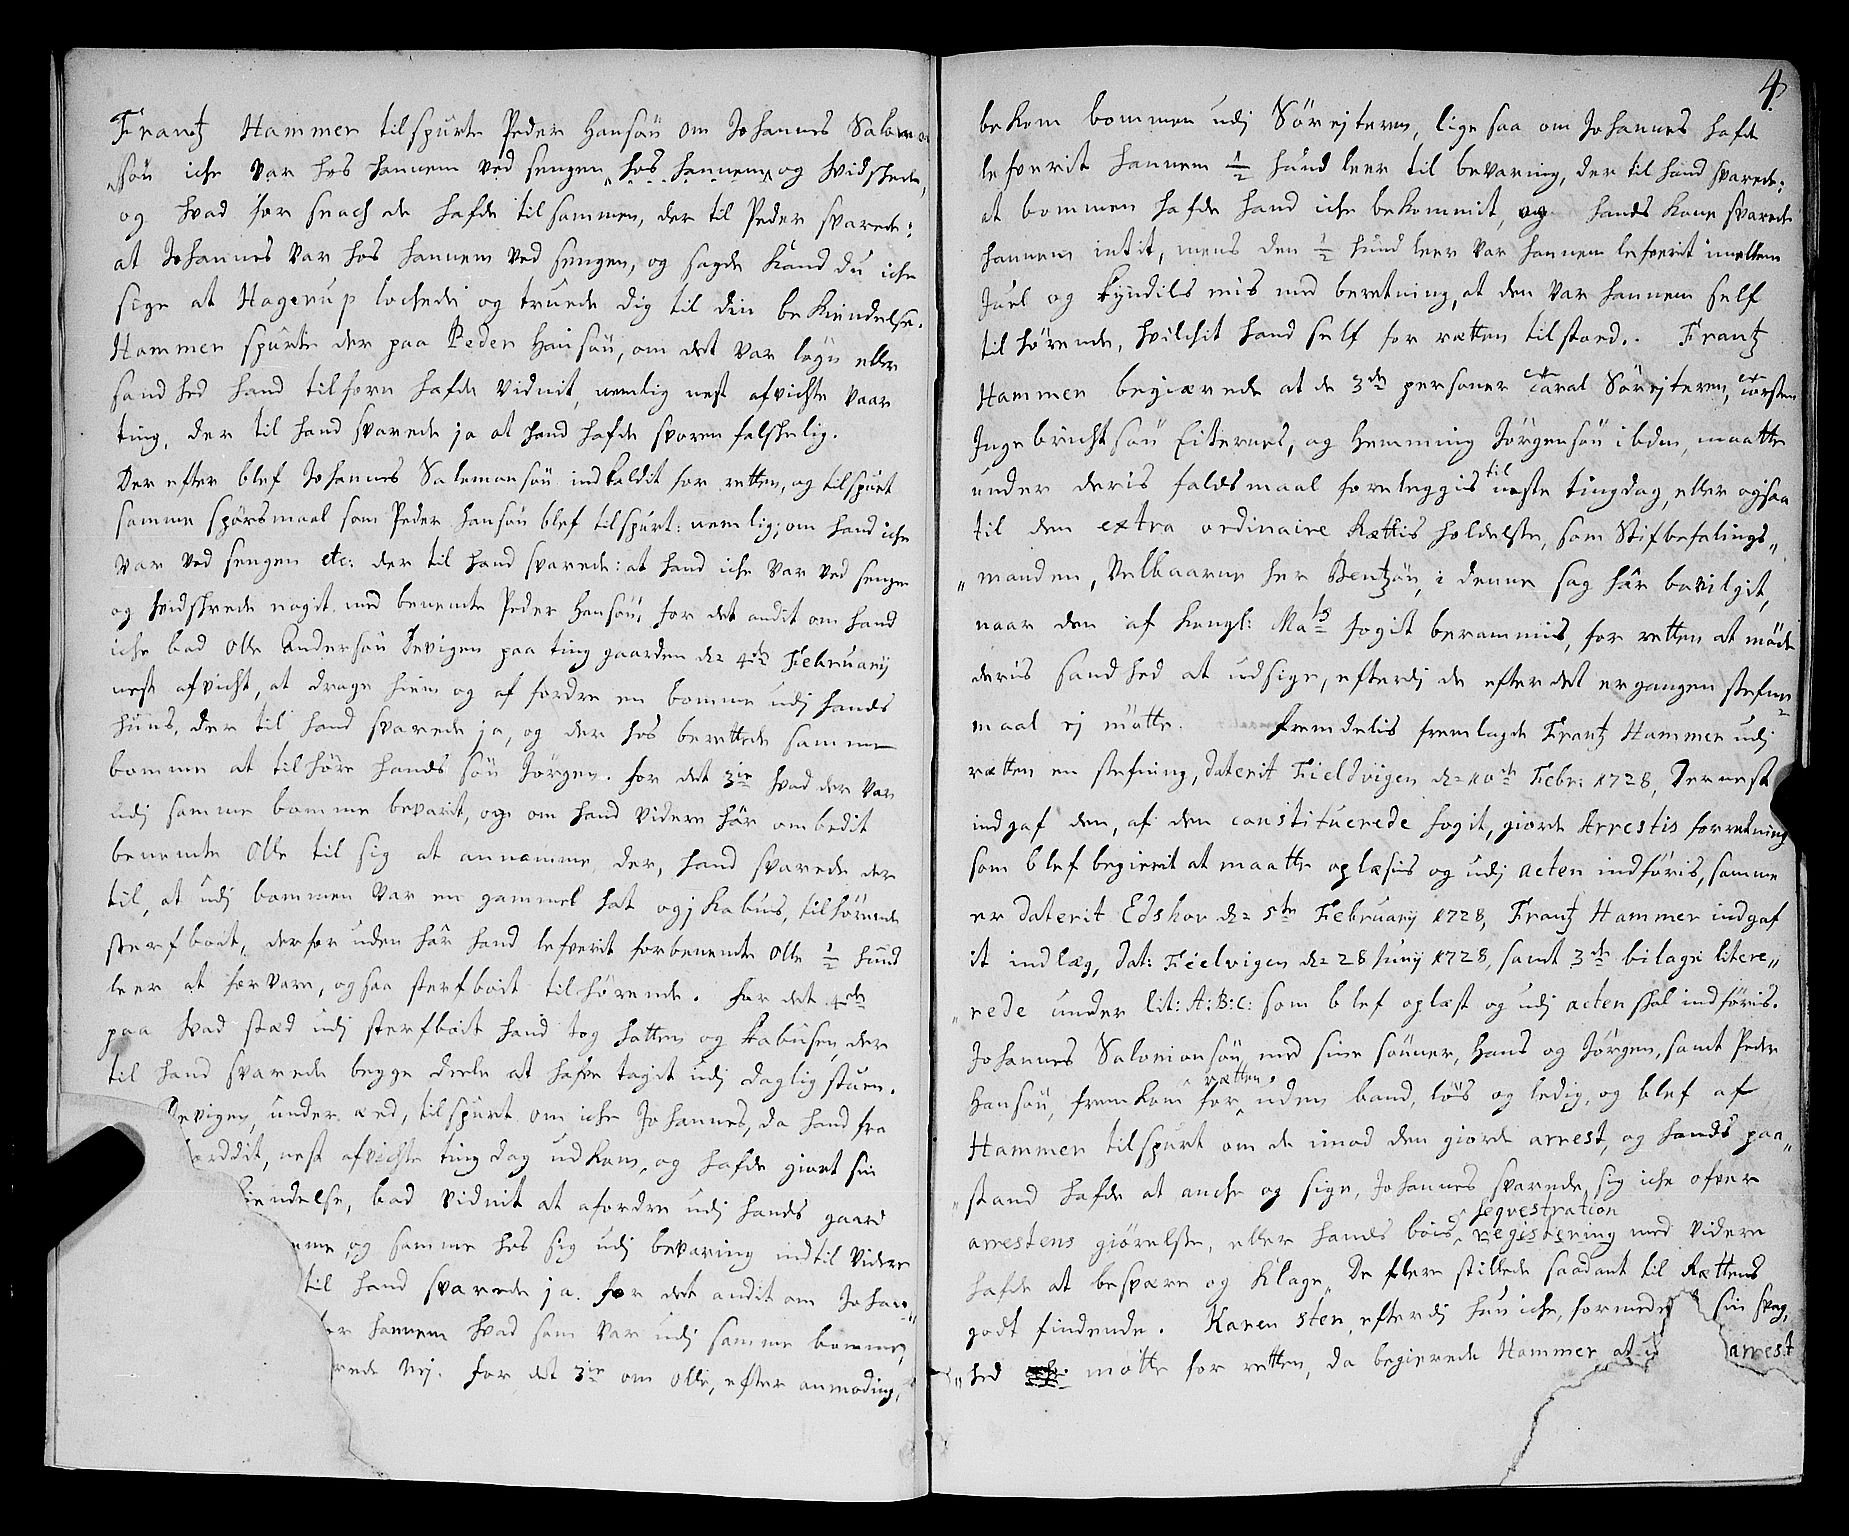 Frantz Hammer tilspurte Peder Hansøn om Johannes Salomon
„søn iche var hos hannem ved sengen hos hannem og hvidskede,
og hvad for snach de hafde tilsammen, der til Peder svarede:
at Johannes var hos hannem ved sengen, og sagde kand du iche
sige at Hagerup lochede og truede dig til din bekiendelse.
Hammer spurte der paa Peder Hansøn, om det var løgn eller
sandhed hand tilforn hafde vidnit, nemlig nest afvichte vaar
ting, der til hand svarede ja at hand hafde svoren falskelig.
Der efter blef Johannes Salomonsøn indkaldit for retten, og tilspurt
samme spørsmaal som Peder Hansøn blef tilspurt: nemlig; om hand iche
var ved sengen etc: der til hand svarede: at hand iche var ved senge
og hvidskede nogit med benemte Peder Hansøn, for det andit om hand
iche bad Olle Andersøn Devigen paa ting gaarden d: 4de February
nest afvicht, at drage hiem og affordre en bomme udj hands
huus, der til hand svarede ja, og der hos berettede samme
bomme at tilhøre hands søn Jørgen. for det 3ie hvad der var
udj samme bomme bevarit, og om hand videre hâr ombedit
benemte Olle til sig at annamme, der, hand svarede der
til, at udj bommen var en gammel hat og j kabuds, tilhørende
sterfboit, derfor uden hâr hand lefverit forbenemte Olle ½ hund
leer at forvare, ogsaa sterfboit tilhørende. for det 4de
paa hvad stæd udj sterfboit hand tog hatten og kabusen, der
til hand svarede begge deele at hafve tagit udj daglig stuen.
Devigen, under æed, tilspurt om iche Johannes, da hand fra
nest afvichte tingdag udkom, og hafde giort sin
iendelse, bad vidnit at afordre udj hands gaard
mme, og samme hos sig udj bevaring indtil videre
til hand svarede ja. for det andit om Johan„
for hannem hvad som var udj samme bomme,
rede Nej. for det 3ie om Olle, efter anmoding,
4
bekom bommen udj Sörejteren, lige saa om Johannes hafde
lefverit hannem ½ hund leer til bevaring, der til hand svarede:
at bommen hafde hand iche bekommit, og hands kone svarede
hannem intit, mens den ½ hund leer var hannem lefverit imellem
Juel og Kyndils mis med beretning, at den var hannem self
tilhørende, hvilchit hand self for rætten tilstoed. Frantz
Hammer begiærede at de 3de personer Caral Sörejteren, Torsten
Ingebrichtsøn Eiternes, og Hemming Jørgensøn ibdm, maatte
under deris faldsmaal foreleggis til neste tingdag, eller ogsaa
til den extra ordinaire Rættis holdelse, som Stifbefalings„
„manden, Velbaarne her Bentzön, i denne sag hâr bevilgit,
naar den af Kongl: Mats fogit berammis, for retten at møde
deris sandhed at udsige, efterdj de efter det ergangen stefne„
maal ej møtte. fremdelis fremlagde Frantz Hammer udj
rætten en stefning, daterit Fieldvigen d: 10de Febr: 1728, Dernest
indgaf den, af den constituerede fogit, giorde Arrestis forretning
som blef begierit at maatte oplæsis og udj acten indføris, samme
er daterit Edshov d: 5te February 1728, Frantz Hammer indgaf
it indlæg, dat: Fielvigen d: 28 Juny 1728, samt 3de bilage litere„
„rede under lit: A: B: C: som blef oplæst og udj acten skal indføris.
Johannes Salomonsøn, med sine sønner, Hans og Jørgen, samt Peder
Hansøn, fremkom for rætten, uden baand, løs og ledig, og blef af
Hammer tilspurt om de imod den giorde arrest, og hands paa„
„stand hafde at anche og sige, Johannes svarede, sig iche ofver
arrestens giørelse, eller hands bois seqvestration registering med videre
hafde at besvære og klage. De flere stillede saadant til Rættens
godt findende. Karen Sten, efterdj hun iche, formedelst sin svag„
„hed møtte for retten, da begierede Hammer at arrest